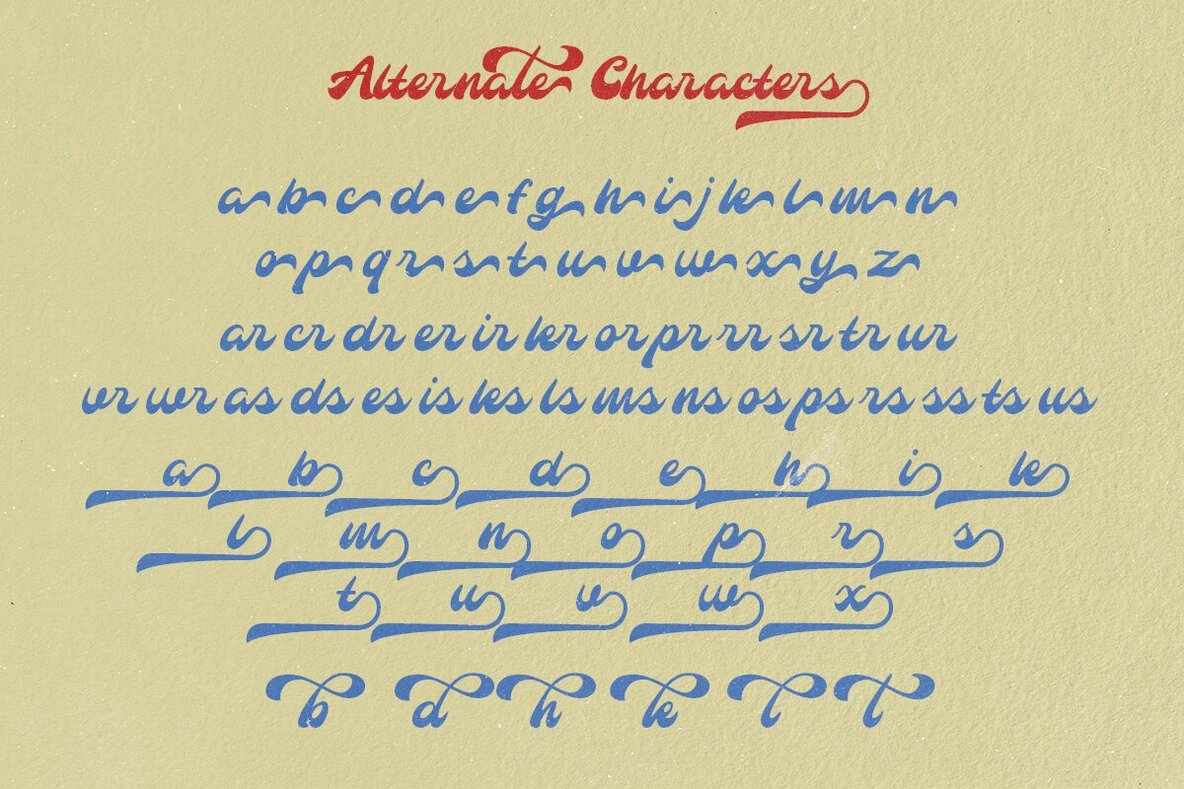 Alternate Characters
a b c d e f g h i j k l m n
o p q r s t u v w x y z
ar cr dr er ir kr or pr rr sr tr ur
vr wr as ds es is ks ls ms ns os ps rs ss ts us
a b c d e h i k
l m n o p r s
t u v w x
b d h k l t